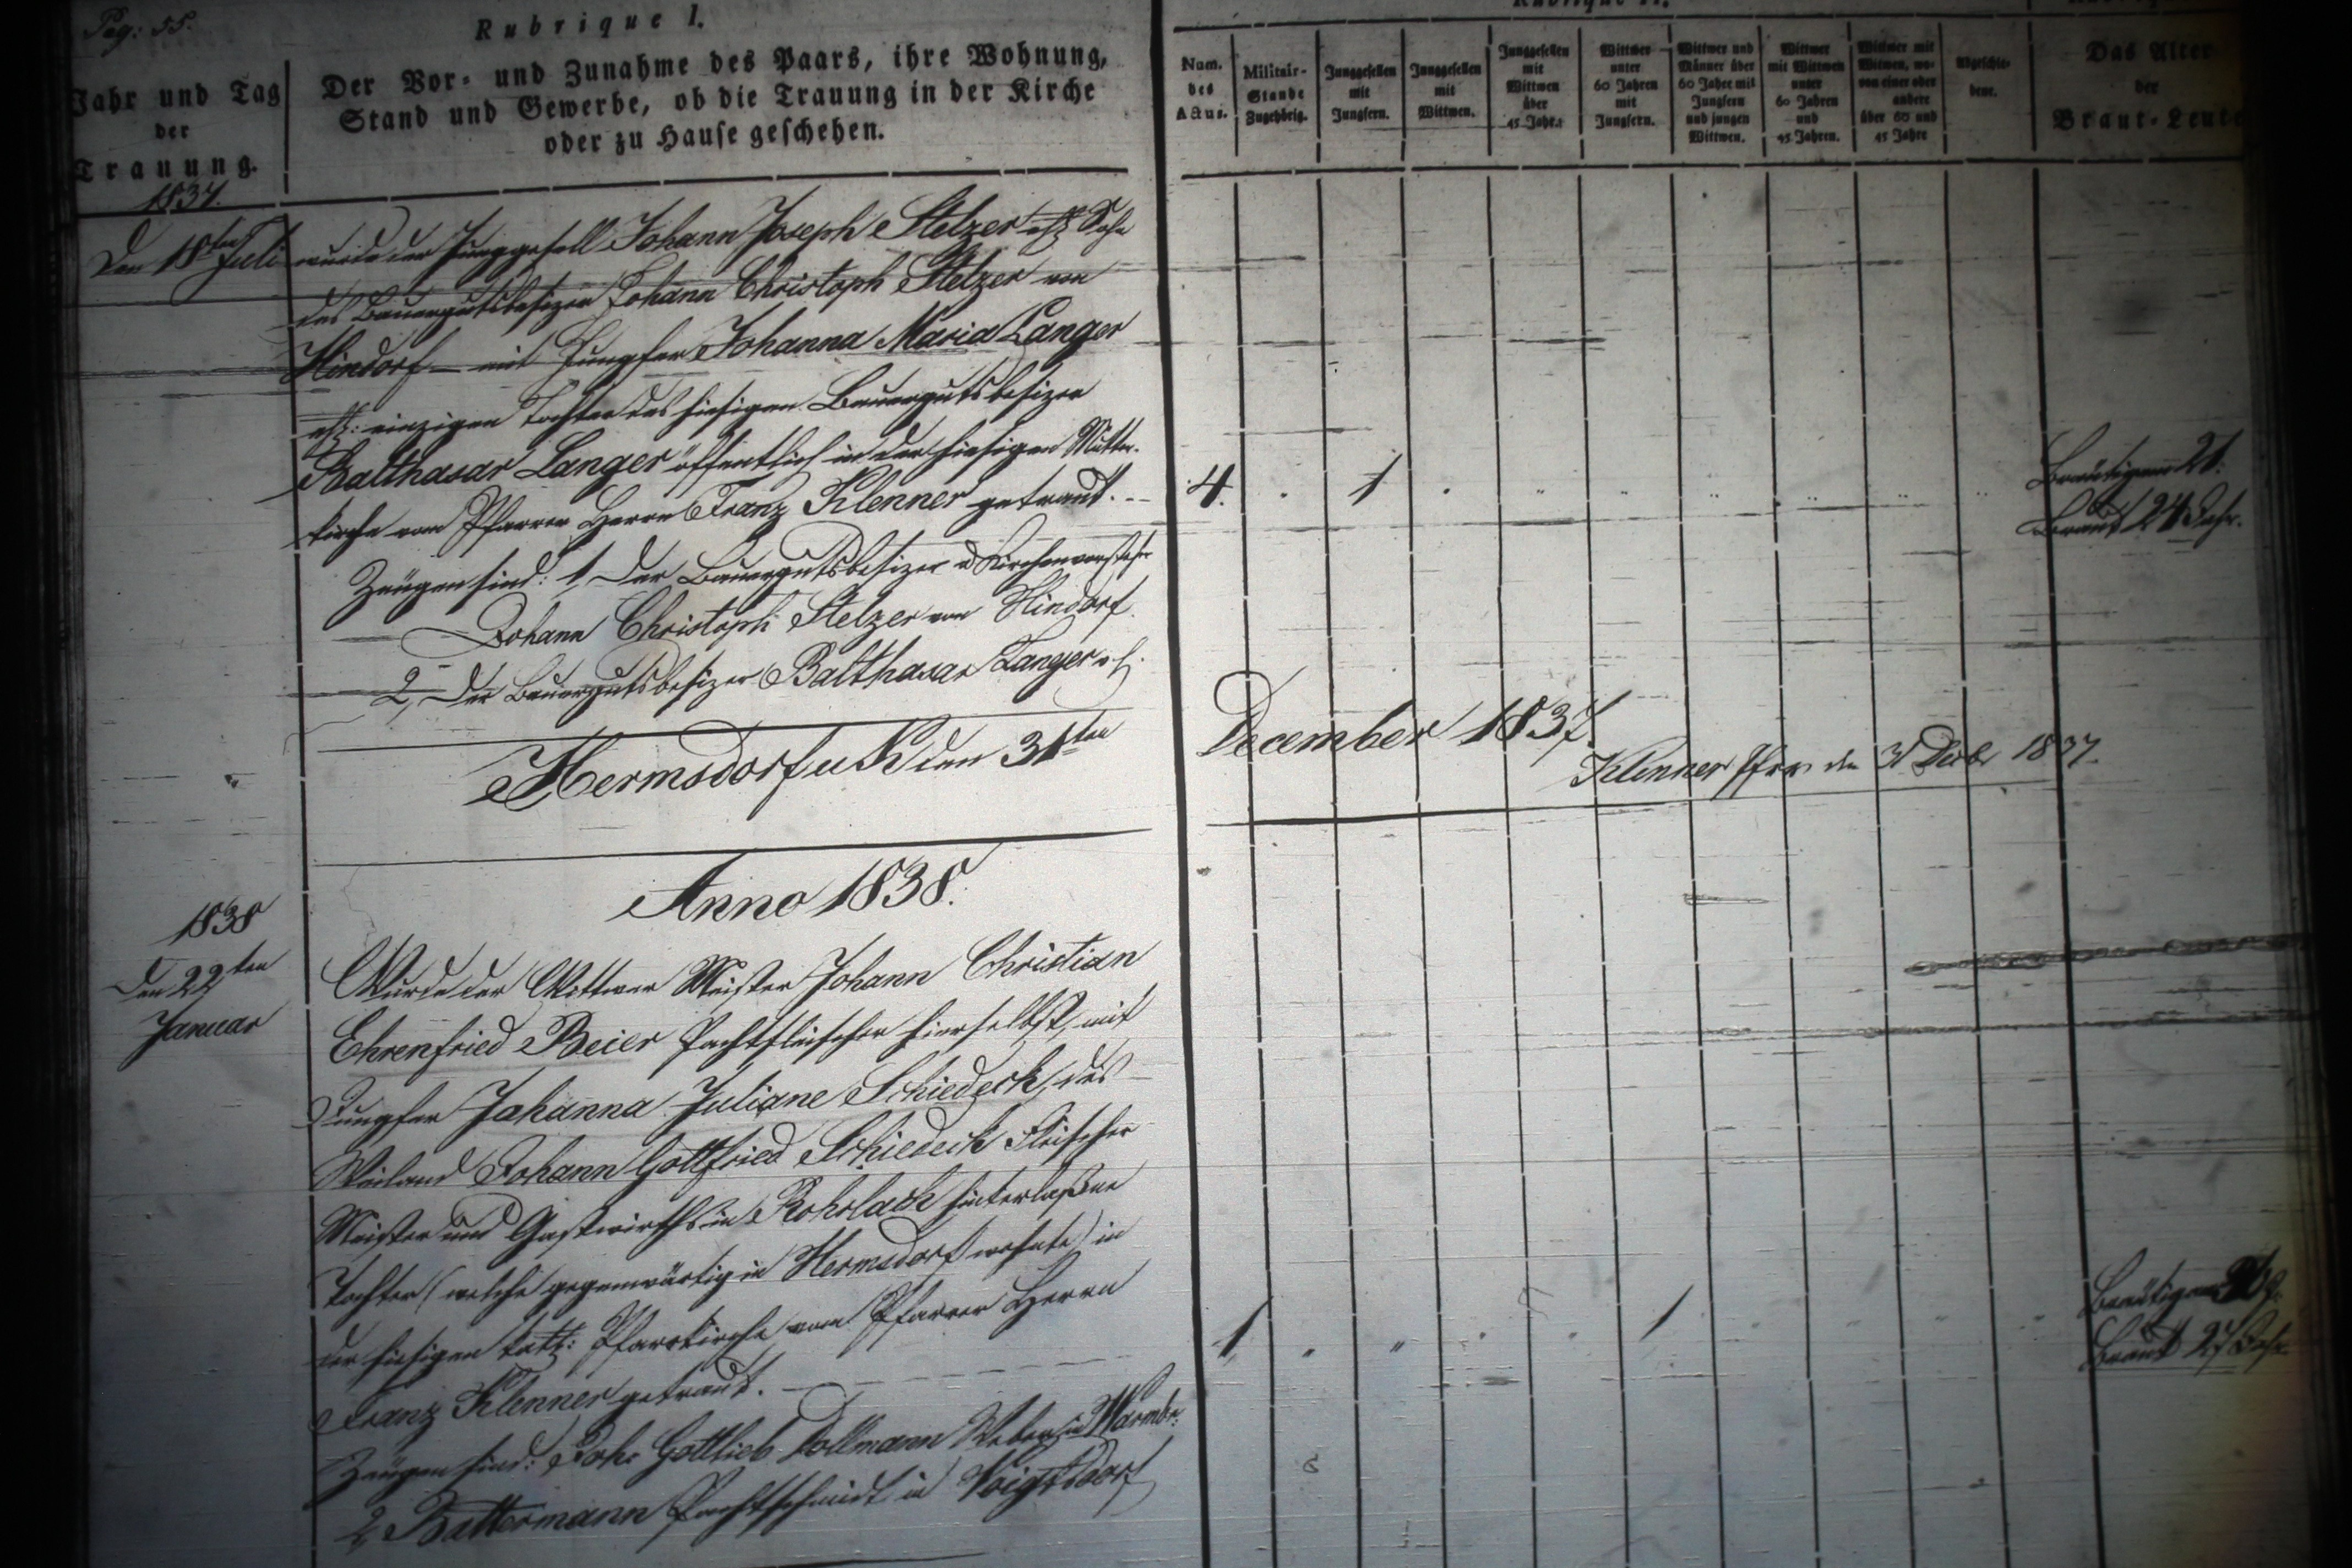 Pag: 55.
Rubrique I.
Jahr und Tag
der
Trauung.
Der Vor- und Zunahme des Paars, ihre Wohnung,
Stand und Gewerbe, ob die Trauung in der Kirche
oder zu Hause geschehen.
Rubrique II.
Num.
des
Actus.
Militair-
Stande
Zugehörig.
Junggesellen
mit
Jungfern.
Junggesellen
mit
Wittwen.
Junggesellen
mit
Wittwen
über
45 Jahr.
Wittwer
unter
60 Jahren
mit
Jungfern.
Wittwer und
Männer über
60 Jahre mit
Jungfern
und jungen
Wittwen.
Wittwer
mit Wittwen
unter
60 Jahren
und
45 Jahren.
Wittwer mit
Witwen, wo-
von einer oder
andere
über 60 und
45 Jahre
Das Alter
der
Braut-Leute
1837.
Den 18ten Juli
wurde der Junggesell Johann Joseph Stelzer Sohn
des Bauergutsbesizer Johann Christoph Stelzer von
Hindorf – mit Jungfer Johanna Maria Langer
einzigen Tochter des hiesigen Bauergutsbesizer
Balthasar Langer öffentlich in der hiesigen Mutter-
kirche vom Pfarrer Herrn Franz Klenner getraut.
4. 1
Bräutigam 21.
Braut 24 Jahr.
Zeugen sind: 1, Der Bauergutsbesizer u Kirchenvorsteher
Johann Christoph Stelzer von Hindorf.
2, Der Bauergutsbesizer Balthasar Langer v h.
Hermsdorf u K den 31ten December 1837.
Klenner Pfrr den 31 Decbr 1837.
Anno 1838.
1838
Den 22ten
Januar
Wurde der Wittwer Meister Johann Christian
Ehrenfried Beier Pachtfleischer hierselbst, mit
Jungfer Johanna Juliane Schiedeck, des
Weiland Johann Gottfried Schiedeck Fleischer
Meister und Gastwirths in Rohrlach hinterlaßne
Tochter (welche gegenwärtig in Hermsdorf wohnte) in
der hiesigen kath: Pfarrkirche vom Pfarrer Herrn
Franz Klenner getraut.
1 1
Bräutigam
Braut 27 Jahr.
Zeugen sind: Joh: Gottlieb Tollmann Weber in Warmbr:
2, Battermann Pachtschmidt in Voigtsdorf